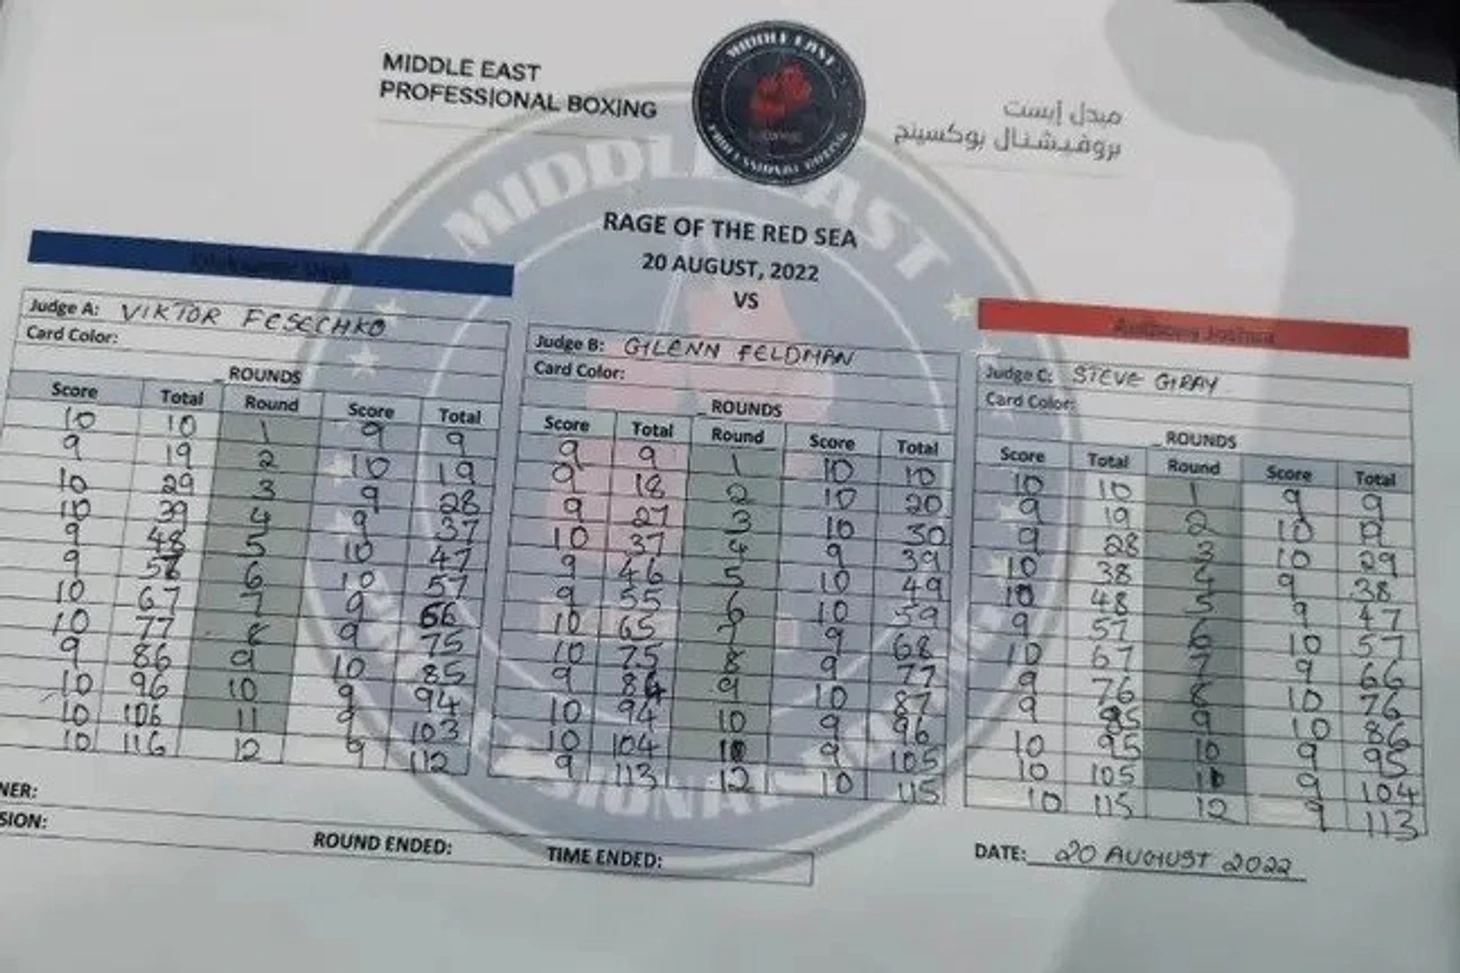 MIDDLE EAST
PROFESSIONAL BOXING
MIDDLE EAST
PROFESSIONAL BOXING
ميدل إيست
بروفيشنال بوكسينج
MIDDLE EAST
RAGE OF THE RED SEA
20 AUGUST, 2022
VS
Oleksandr Usyk
Anthony Joshua
Judge A: VIKTOR FESECHKO
Card Color:
_ROUNDS
Score Total Round Score Total
10 10 1 9 9
9 19 2 10 19
10 29 3 9 28
10 39 4 9 37
9 48 5 10 47
9 57 6 10 57
10 67 7 9 66
10 77 8 9 75
9 86 9 10 85
10 96 10 9 94
10 106 11 9 103
10 116 12 9 112
Judge B: GLENN FELDMAN
Card Color:
_ROUNDS
Score Total Round Score Total
9 9 1 10 10
9 18 2 10 20
9 27 3 10 30
10 37 4 9 39
9 46 5 10 49
9 55 6 10 59
10 65 7 9 68
10 75 8 9 77
9 84 9 10 87
10 94 10 9 96
10 104 11 9 105
9 113 12 10 115
Judge C: STEVE GRAY
Card Color:
_ROUNDS
Score Total Round Score Total
10 10 1 9 9
9 19 2 10 19
9 28 3 10 29
10 38 4 9 38
10 48 5 9 47
9 57 6 10 57
10 67 7 9 66
9 76 8 10 76
9 85 9 10 86
10 95 10 9 95
10 105 11 9 104
10 115 12 9 113
NER:
SION:
ROUND ENDED:
TIME ENDED:
DATE: 20 AUGUST 2022